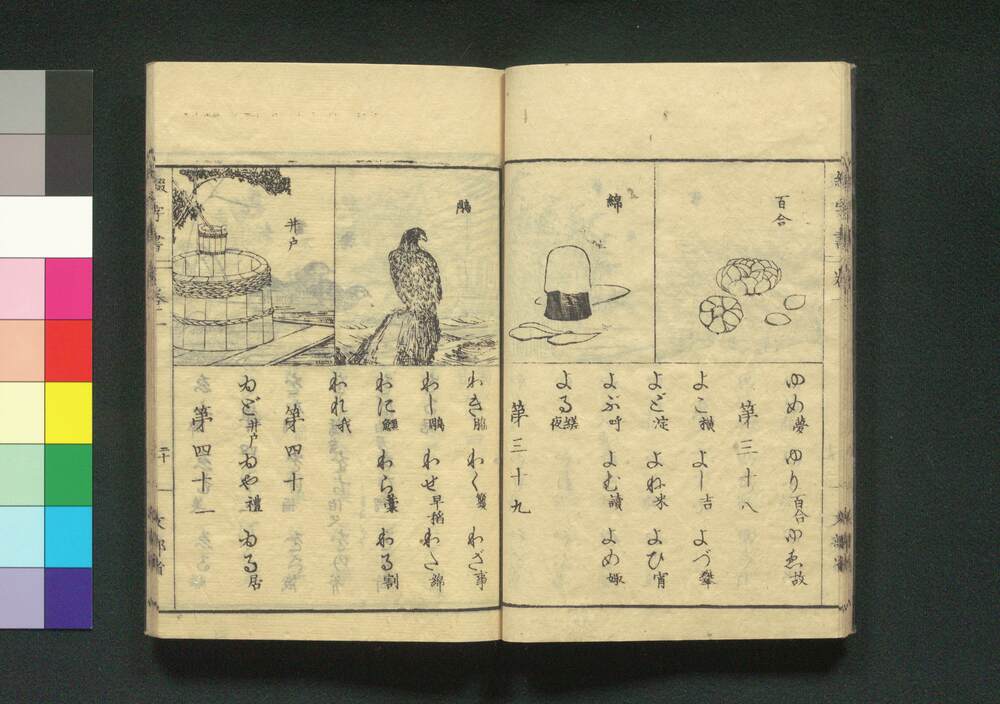 百合
綿
ゆめ夢 ゆり百合 ゆゑ故
第三十八
よこ横 よし吉 よづ攀
よど淀 よね米 よひ宵
よぶ呼 よむ讀 よめ
よる 夜
第三十九
井戸
わき脇 わく わざ事
わし わせ早稻 わた綿
わに鰐 わら藁 わる割
われ我
第四十
ゐど井戸 ゐや禮 ゐる居
第四十一
二十一
文部省